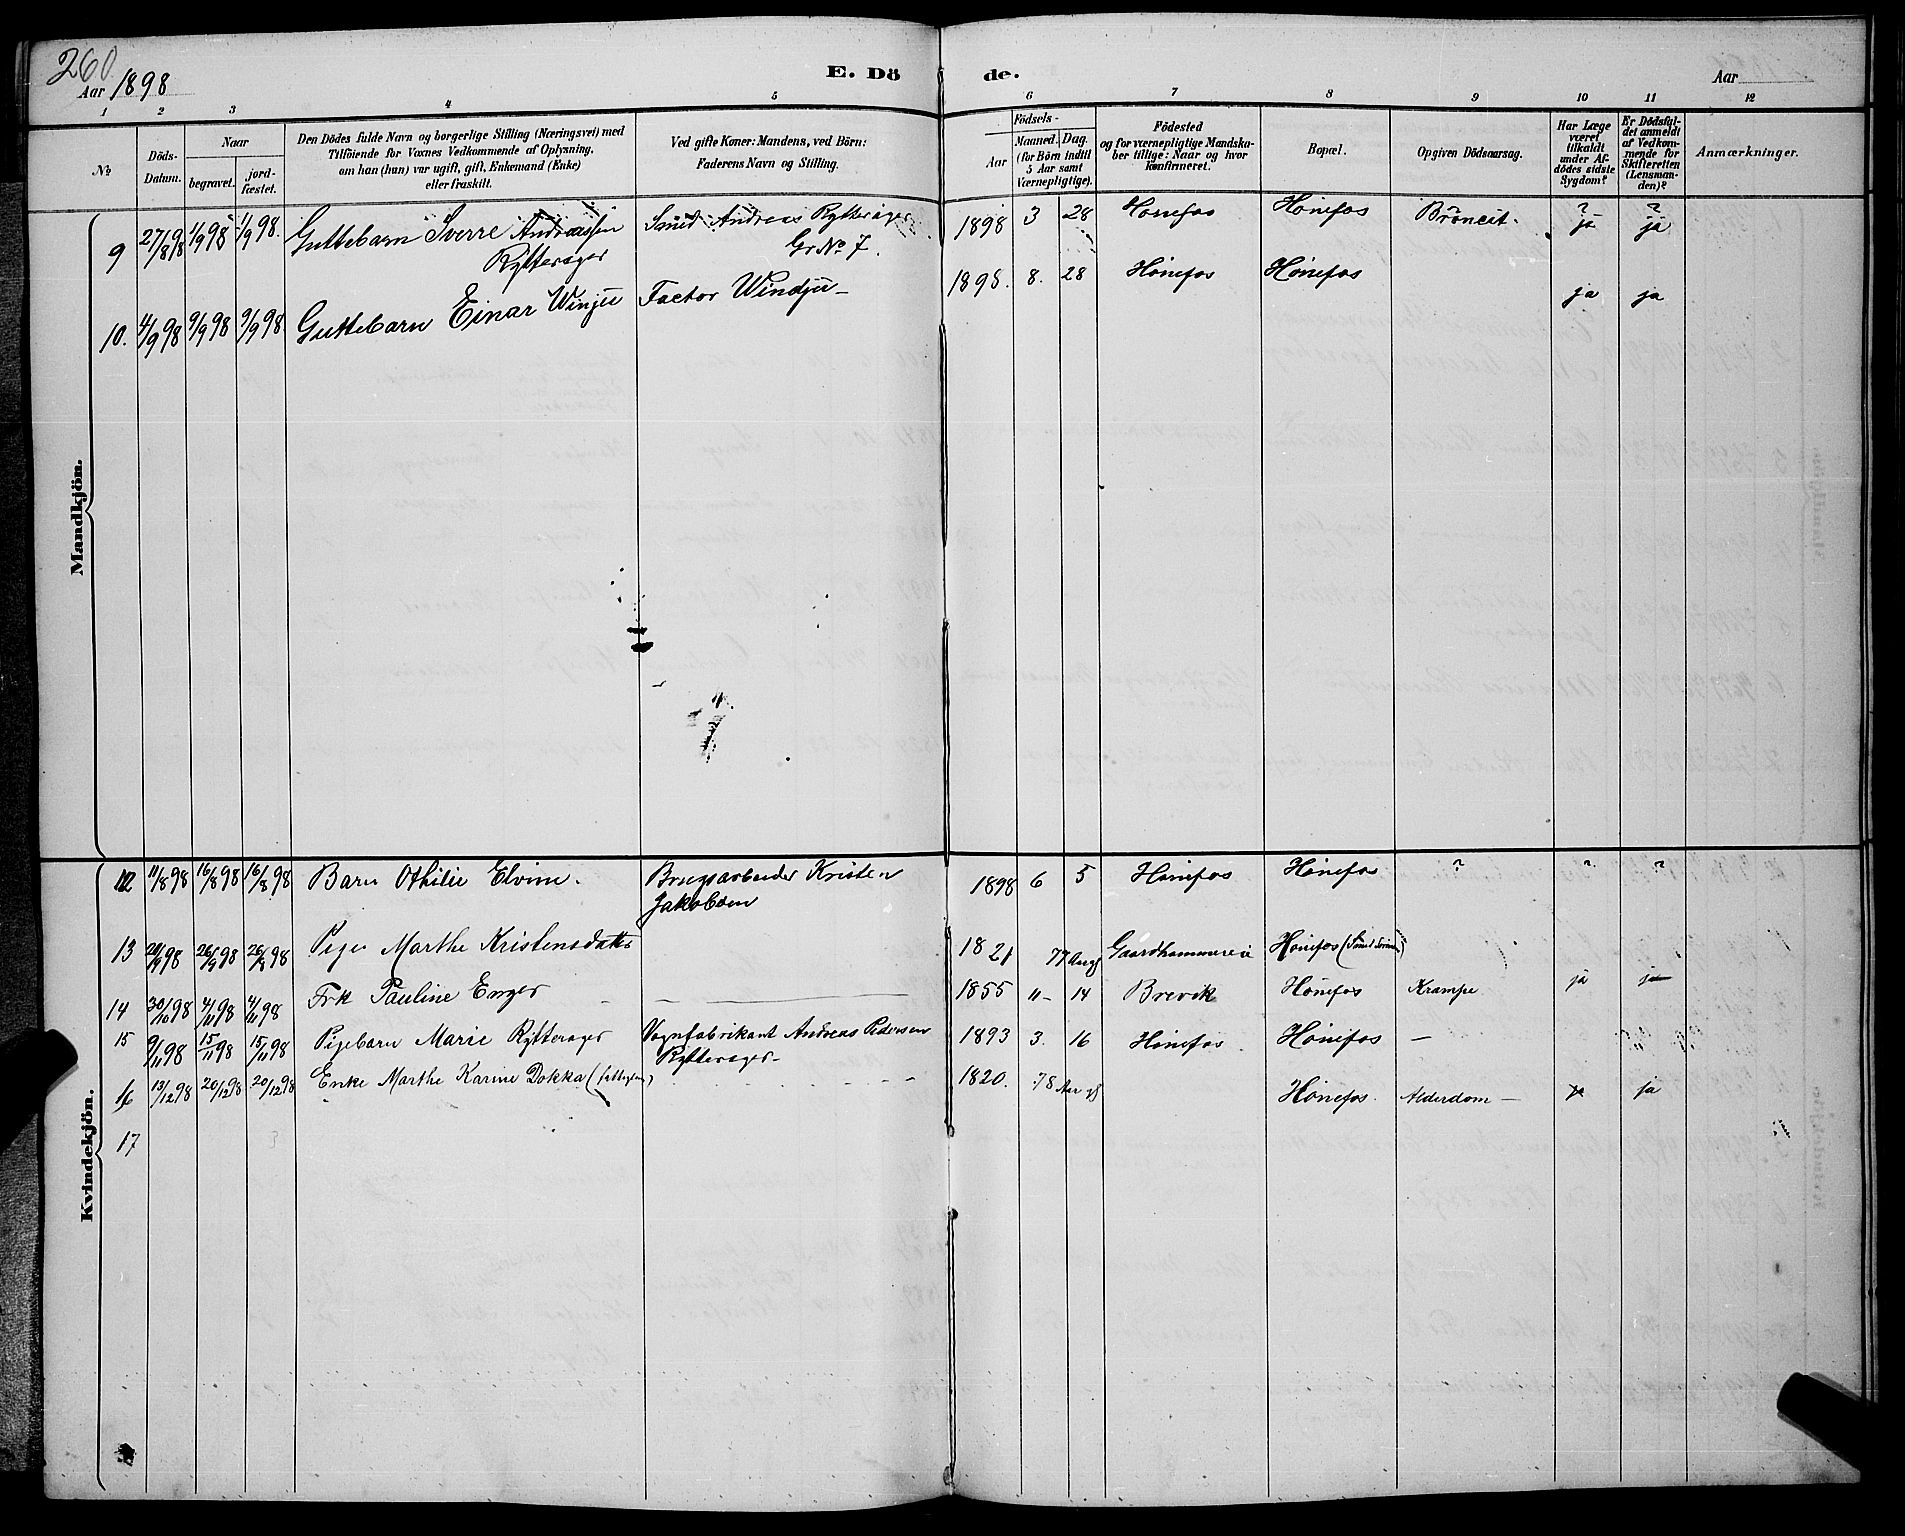 260
Aar 1898
E. Dö de.
Aar
1 2 3 4 5 6 7 8 9 10 11 12
No
Döds-Datum.
Naar
begravet. jord-fæstet.
Den Dödes fulde Navn og borgerlige Stilling (Næringsvei) med
Tilföiende for Voxnes Vedkommende af Oplysning,
om han (hun) var ugift, gift, Enkemand (Enke)
eller fraskilt.
Ved gifte Koner: Mandens, ved Börn:
Faderens Navn og Stilling.
Födsels-
Aar
Maaned. Dag.
(for Börn indtil
5 Aar samt
Værnepligtige).
Födested
og for værnepligtige Mandska-
ber tillige: Naar og hvor
konfirmeret.
Bopæl.
Opgiven Dödsaarsag.
Har Læge
været
tilkaldt
under Af-
dödes sidste
Sygdom?
Er Dödsfal-
det anmeldt
af Vedkom-
mende for
Skifteretten
(Lensman-
den)?
Anmærkninger.
Mandkjön.
9 27/8 98 1/9 98 1/9 98. Guttebarn Sverre Andreassen Smed Andreas Rytterager 1898 3 28 Hønefos Hønefos Broncit. ? ja ? ja
Rytterager Gr No 7.
10. 4/9 98 9/9 98 9/9 98 Guttebarn Einar Winjü Factor Windjü 1898. 8. 28 Hønefos Hønefos ja ja
Kvindekjön.
12 11/8 98 16/8 98 16/8 98 Barn Othilie Elvine. Brugsarbeider Kristen 1898 6 5 Hønefos Hønefos ? ? ?
Jakobsen
13 20/9 98 26/9 98 26/9 98 Pige Marthe Kristensdatter 1821 77 Aar gl Gaardhammereie Hønefos
14 30/10 98 4/11 98 4/11 98 Frk Pauline Enger — 1855 11 - 14 Brevik Hønefos Krampe ja ja
15 9/11 98 15/11 98 15/11 98 Pigebarn Marie Rytterager Vognfabrikant Andreas Pedersen 1893 3. 16 Hønefos. Hønefos —
Rytterager
16 13/12 98 20/12 98 20/12 98 Enke Marthe Karine Dokka 1820. 78 Aar gl Hønefos. Alderdom — ja
17